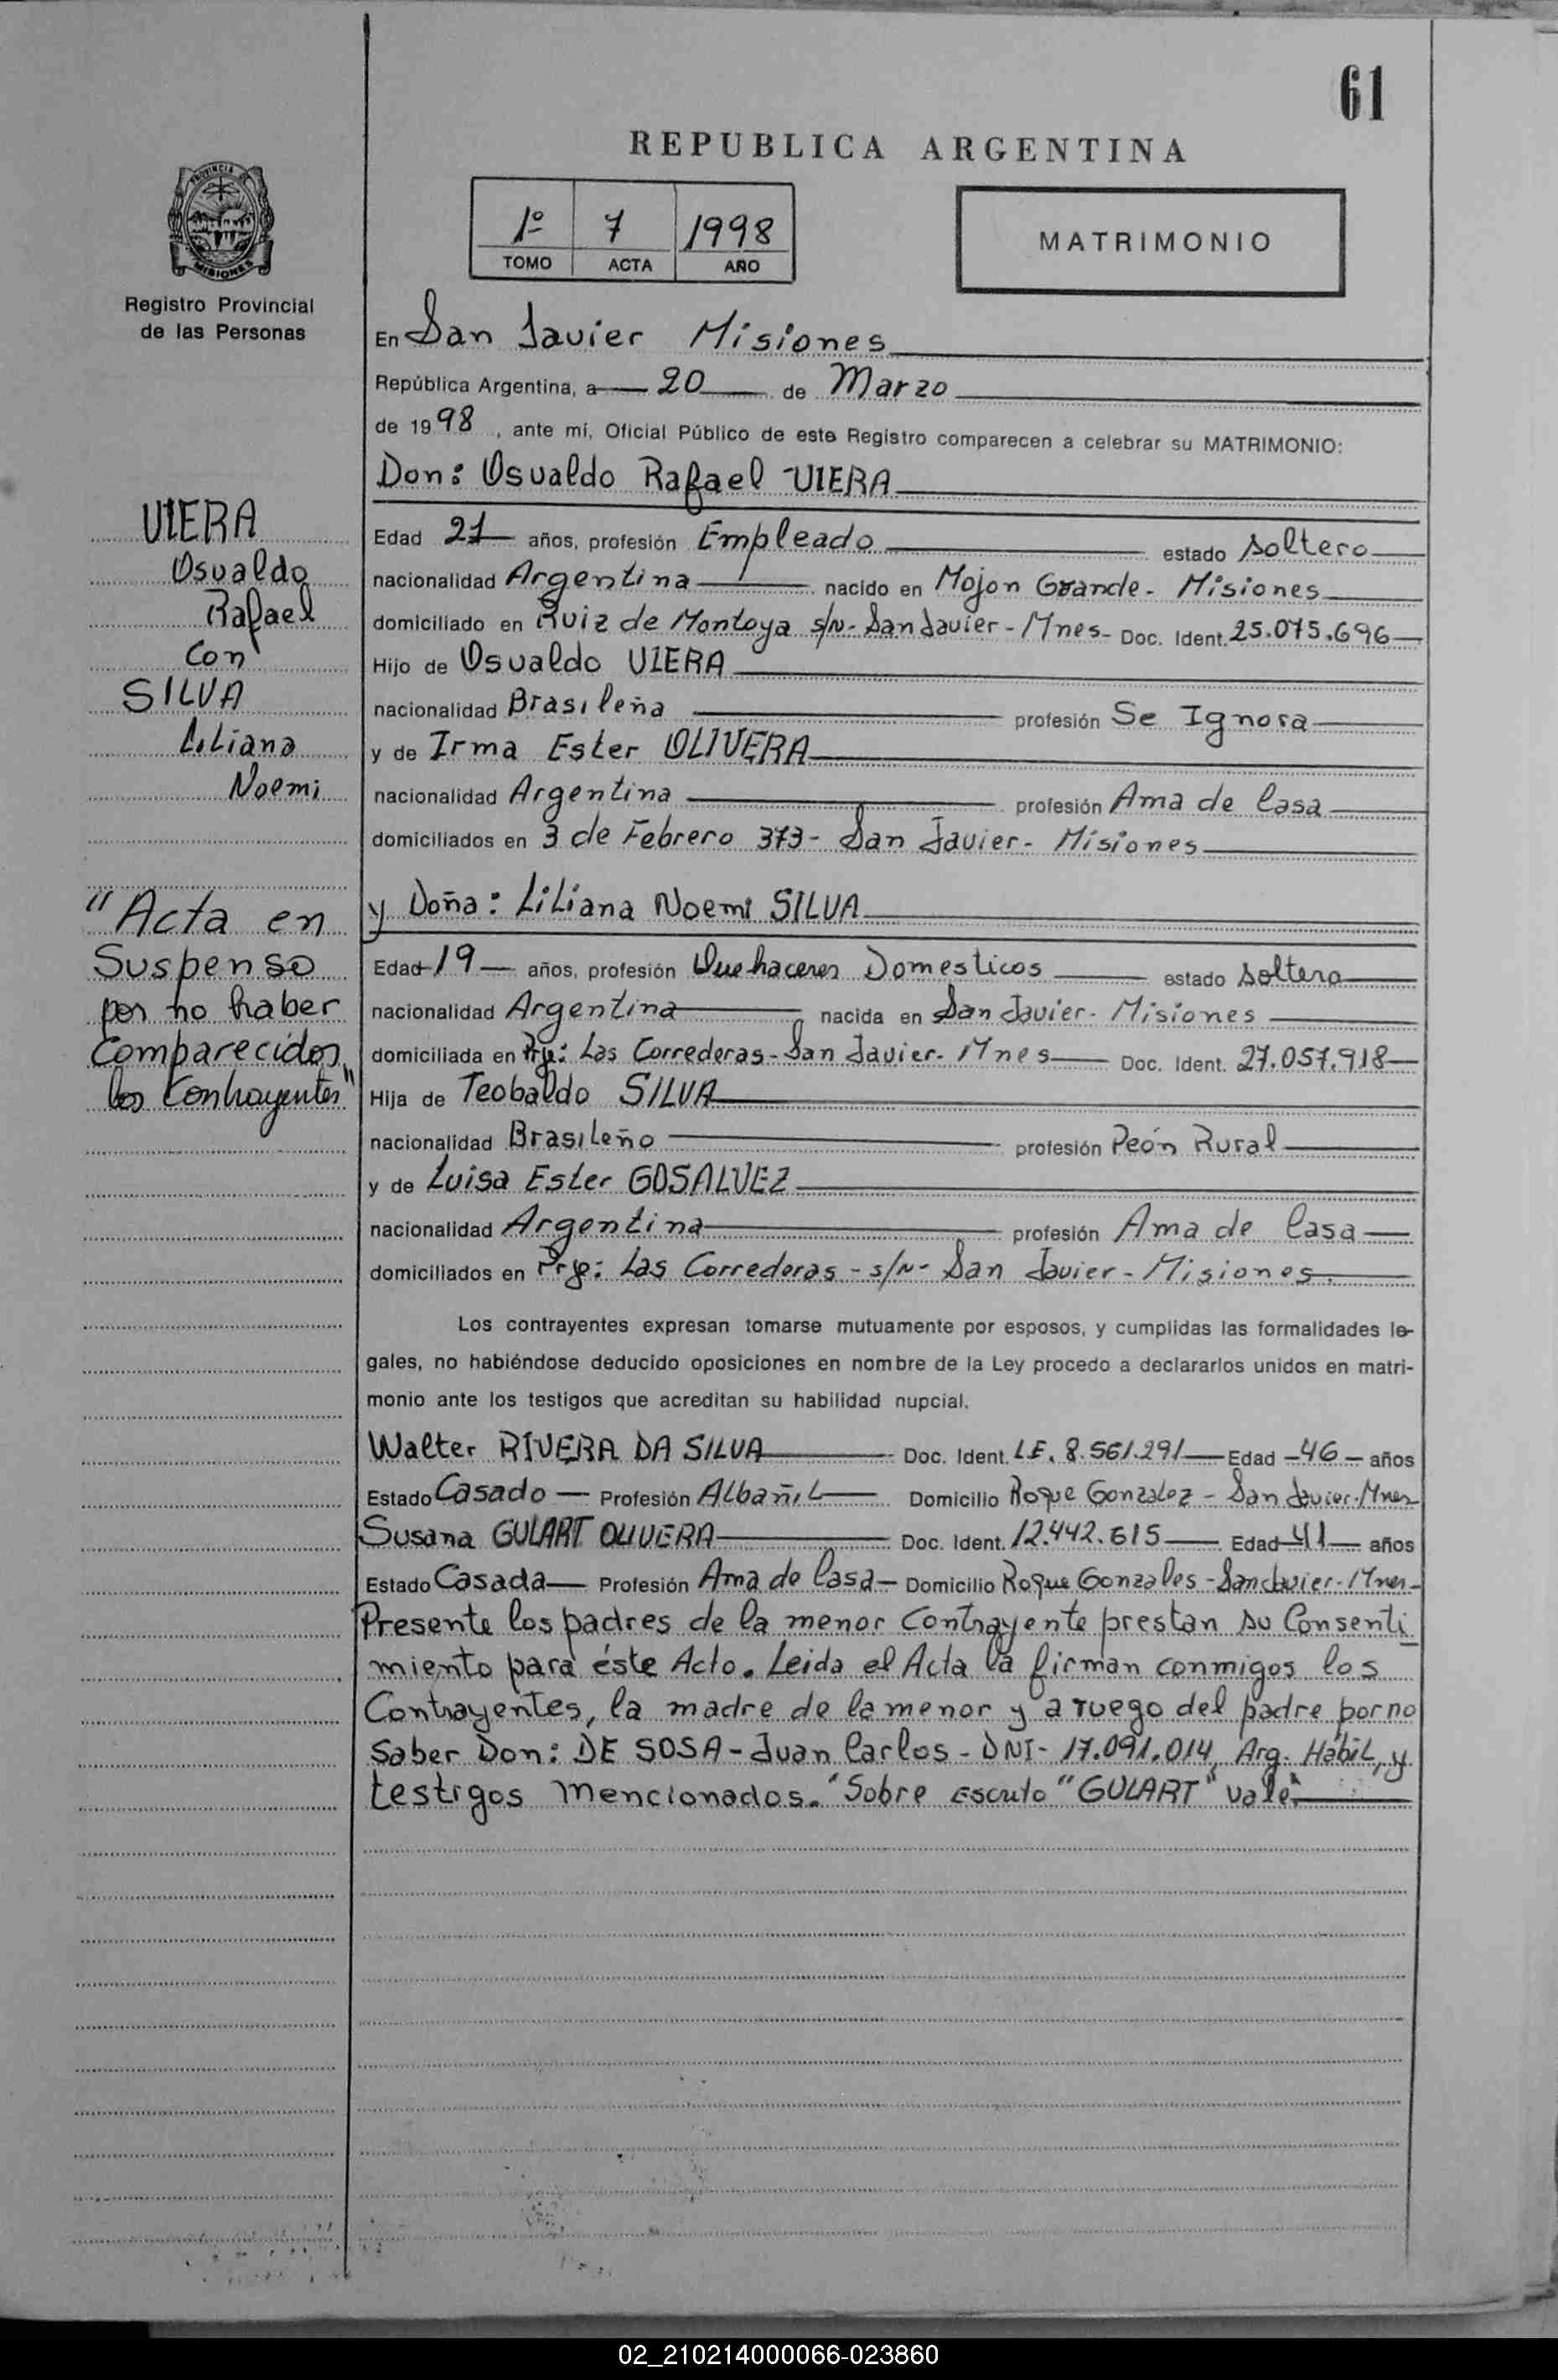 61
REPUBLICA ARGENTINA
PROVINCIA DE
MISIONES
Registro Provincial
de las Personas
1º 7 1998
TOMO ACTA AÑO
MATRIMONIO
En San Javier Misiones
República Argentina, a 20 de Marzo
de 1998, ante mí, Oficial Público de este Registro comparecen a celebrar su MATRIMONIO:
Don: Osvaldo Rafael VIERA
Edad 21 años, profesión Empleado estado soltero
nacionalidad Argentina nacido en Mojon Grande - Misiones
domiciliado en Ruiz de Montoya s/N - San Javier - Mnes - Doc. Ident. 25.075.696
Hijo de Osvaldo VIERA
nacionalidad Brasileña profesión Se Ignora
y de Irma Ester OLIVERA
nacionalidad Argentina profesión Ama de Casa
domiciliados en 3 de Febrero 373 - San Javier - Misiones
y Doña: Liliana Noemi SILVA
Edad 19 años, profesión Quehaceres Domesticos estado soltera
nacionalidad Argentina nacida en San Javier - Misiones
domiciliada en Prje: Las Correderas - San Javier - Mnes Doc. Ident. 27.057.918
Hija de Teobaldo SILVA
nacionalidad Brasileño profesión Peón Rural
y de Luisa Ester GOSALVEZ
nacionalidad Argentina profesión Ama de Casa
domiciliados en Prje: Las Correderas - s/N - San Javier - Misiones.
Los contrayentes expresan tomarse mutuamente por esposos, y cumplidas las formalidades le-
gales, no habiéndose deducido oposiciones en nombre de la Ley procedo a declararlos unidos en matri-
monio ante los testigos que acreditan su habilidad nupcial.
Walter RIVERA DA SILVA Doc. Ident. L.E. 8.561.291 Edad 46 años
Estado Casado Profesión Albañil Domicilio Roque Gonzalez - San Javier - Mnes
Susana GULART OLIVERA Doc. Ident. 12.442.615 Edad 41 años
Estado Casada Profesión Ama de Casa Domicilio Roque Gonzales - San Javier - Mnes -
Presente los padres de la menor Contrayente prestan su Consenti
miento para éste Acto. Leida el Acta la firman conmigos los
Contrayentes, la madre de la menor y a ruego del padre por no
saber Don: DE SOSA - Juan Carlos - DNI - 17.091.014, Arg. Hábil, y
testigos mencionados. "Sobre Escrito "GULART" vale"
VIERA
Osvaldo
Rafael
Con
SILVA
Liliana
Noemi
"Acta en
Suspenso
por no haber
Comparecidos
los Contrayentes"
02_210214000066-023860